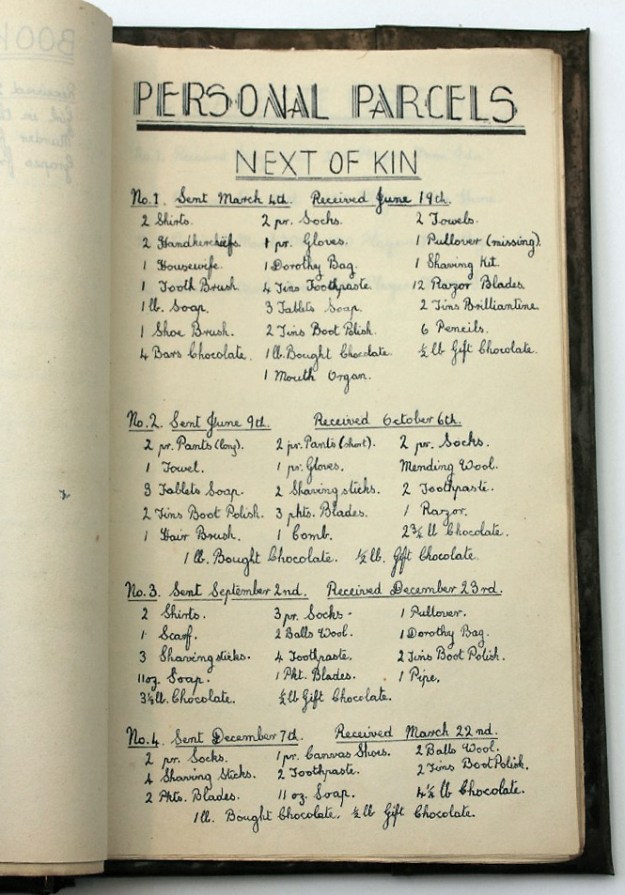 PERSONAL PARCELS
NEXT OF KIN
No.1. Sent March 4th. Received June 19th.
2 Shirts. 2 pr. Socks. 2 Towels.
2 Handkerchiefs. 1 pr. Gloves. 1 Pullover (missing).
1 Housewife. 1 Dorothy Bag. 1 Shaving Kit.
1 Tooth Brush. 4 Tins Toothpaste. 12 Razor Blades.
1 lb. Soap. 3 Tablets Soap. 2 Tins Brilliantine.
1 Shoe Brush. 2 Tins Boot Polish. 6 Pencils.
4 Bars Chocolate. 1 lb. Bought Chocolate. ½ lb Gift Chocolate.
1 Mouth Organ.
No.2. Sent June 9th. Received October 6th.
2 pr. Pants (long). 2 pr. Pants (short). 2 pr. Socks.
1 Towel. 1 pr. Gloves. Mending Wool.
3 Tablets Soap. 2 Shaving sticks. 2 Toothpaste.
2 Tins Boot Polish. 3 pkts. Blades. 1 Razor.
1 Hair Brush. 1 Comb. 2¾ lb Chocolate.
1 lb. Bought Chocolate. ½ lb. Gift Chocolate.
No.3. Sent September 2nd. Received December 23rd.
2 Shirts. 3 pr. Socks. 1 Pullover.
1 Scarf. 2 Balls Wool. 1 Dorothy Bag.
3 Shaving sticks. 4 Toothpaste. 2 Tins Boot Polish.
11 oz. Soap. 1 Pkt. Blades. 1 Pipe.
3½ lb. Chocolate. ½ lb Gift Chocolate.
No.4. Sent December 7th. Received March 22nd.
2 pr. Socks. 1 pr. Canvas Shoes. 2 Balls Wool.
4 Shaving Sticks. 2 Toothpaste. 2 Tins Boot Polish.
2 Pkts. Blades. 11 oz. Soap. 4½ lb Chocolate.
1 lb. Bought Chocolate. ½ lb Gift Chocolate.